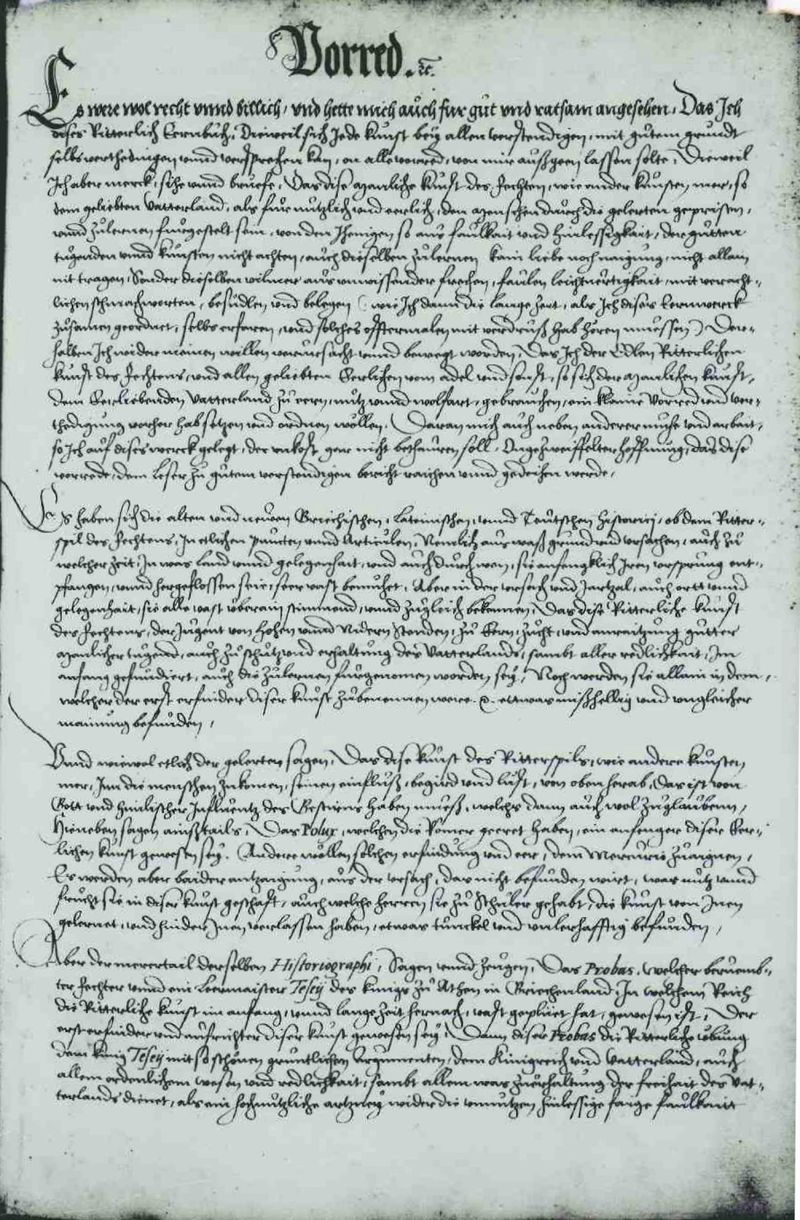 Vorred. ꝛc.
Es were wol recht vnnd billich, vnd hette mich auch fur gut vnd ratsam angesehen, Das Ich
dises Ritterlich Lernbuch, Dieweil sich Jede kunst bey allen verstendigen, mit gutem grundt
selbs verthedingen vnnd versprechen kan, on alle vorred, von mir außgeen lassen solte, Dieweil
Ich aber merck, sihe vnnd brueffe, Das dise manliche kunst des Fechten, wie ander kunsten mer, so
dem geliebten Vatterland, als fur nutzlich vnd eerlich, den menschen durch die gelerten gepreisen,
vnnd zulernen furgestelt sein, von den Jhenigen, so aus faulkait vnd hinlessigkait, der gutten
tugenden vnnd kunsten nicht achten, auch dieselben zulernen kain liebe noch naigung, nicht allain
nit tragen, Sonder dieselben wilmer, aus vnwissender frechen, faulen leichtuertigkait, mit veracht-
lichen schmachworten, besudlen vnd belegen (wie Ich dann die lange Zeit, als Ich dises Lernwerck
zusamen geordnet, selbs erfaren, vnd solches offtermalen mit verdruß hab hören muessen) Der-
halben Ich wider meinen willen verursacht vnnd bewegt worden, Das Ich der Edlen Ritterlichen
kunst des Fechtens, vnd allen geliebten Eerlichen vom adel vnd sonst, so sich der manlichen kunst,
dem Eerliebenden Vatterland zu eern, nutz vnnd wolfart, gebrauchen, ein klaine Vorred vnd ver-
thedigung vorher hab setzen vnd ordnen wollen. Daran mich auch neben anderer muhe vnd arbait,
so Ich auf dises werck gelegt, der vnkost gar nicht bethauren soll, Vngezweiffelter hoffnung, das dise
vorrede, dem leser zu gutem verstendigen bericht raichen vnnd gedeihen werde,
Es haben sich die alten vnd neuen Griechischen, Lateinischen, vnnd Teutschen Historici, ob dem Ritter-
spil des Fechtens, In etlichen puncten vnnd Articulen, Nemlich aus waß grund vnd vrsachen, auch zu
welcher zeit, In was land vnnd gelegenhait, vnd auch durch wen, sie anfengklich Iren vrsprung ent-
pfangen, vnnd hergeflossen seie, seer vast bemuhet, Aber in der vrsach vnd Jarzal, auch ortt vnnd
gelegenhait, sie alle vast vberain stimmend, vnnd zugleich bekennen, Das dise Ritterliche kunst
des Fechtens, der Jugent von hohen vnnd Nidern Stenden, zu Eern, zucht, vnd anraitzung gutter
manlicher tugend, auch zu schutz vnd erhaltung des Vatterlands, sambt aller redlichkait, Im
anfang gefundiert, auch die zulernen furgenomen worden sey, Noch werden sie allain in dem,
welcher der erst erfinder diser kunst zubenennen were. ꝛc. ettwas mißhellig vnd vngleicher
mainung befunden,
Vnnd wiewol etlich der gelerten sagen, Das dise kunst des Ritterspils, wie andere kunsten
mer, Inn die menschen zukomen, seinen einfluß, begird vnd lust, von oben herab, das ist von
Gott vnd himlischer Influentz des Gestirns haben mueß, welchs dann auch wol zuglauben,
Hieneben sagen ainstails, Das Polux, welchen die Römer geeret haben, ein anfenger diser Eer-
lichen kunst gewesen sey. Andere wöllen solchen erfindung vnd eer, dem Mercurio zuaignen,
Es werden aber baider antzaigung, aus der vrsach, das nicht befunden wirt, was nutz vnnd
frucht sie in diser kunst geschafft, auch welche herren sie zu Schuler gehabt, die kunst von Inen
gelernet, vnd hinder Inen verlassen haben, etwas tunckel vnd vnlerhafftig befunden,
Aber der merertail derselben Historiographi, Sagen vnnd zeugen, Das Probas, welcher beruemb-
ter Fechter vnnd ein Leermaister Tesey des kunigs zu Athen in Griechenland, In welchem Reich
die Ritterliche kunst im anfang, vnnd lange zeit hernach, vast gepluet hat, gewesen ist, Der
erst erfinder vnd aufrichter diser kunst gewesen sey, Dann diser Probas die Ritterliche vbung
dem kunig Tesey mit so schönen gruntlichen Argumenten, dem Kunigreich vnd Vatterland, auch
allem ordenlichem wesen vnd redlichkait, sambt allem was zuerhaltung der freihait des Vat-
terlands dienet, als ain hochnutzliche artzney wider die vnnutzen hinlessige farge faulkait